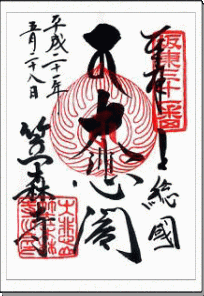 坂東三十一番
奉拝 上総國
大悲閣
笠森寺
平成二十一年
五月二十八日